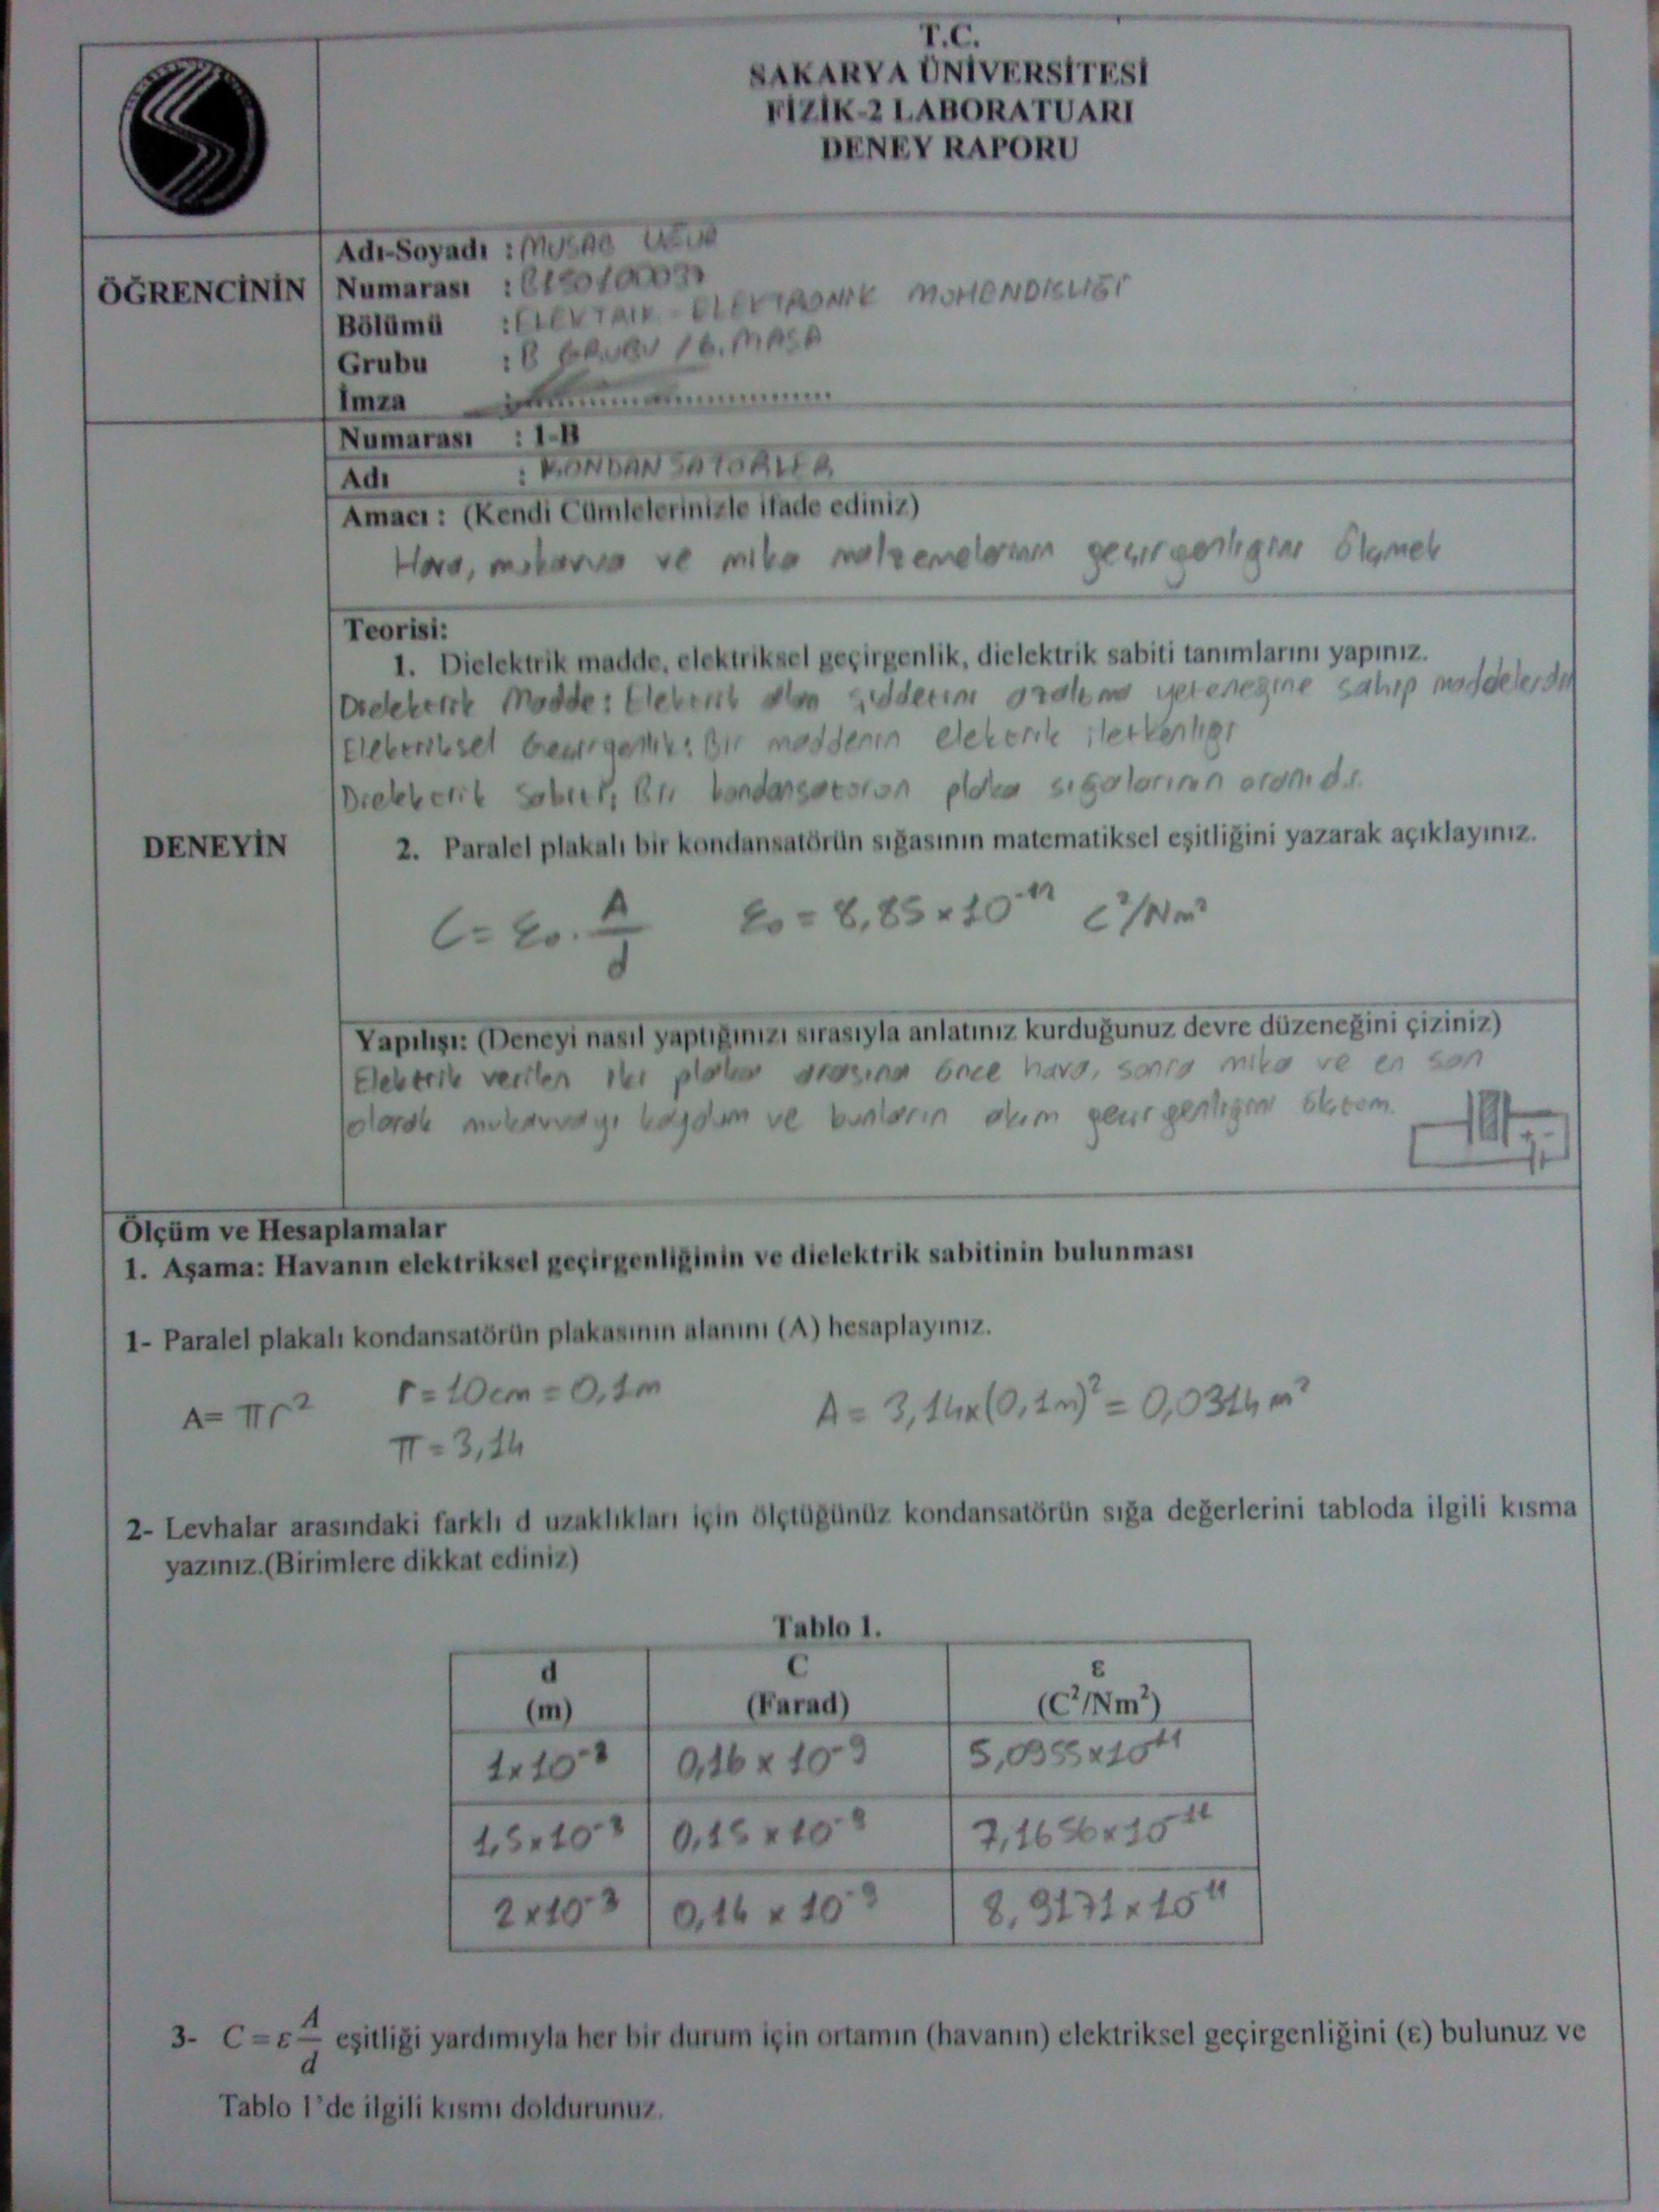 T.C.
SAKARYA ÜNİVERSİTESİ
FİZİK-2 LABORATUARI
DENEY RAPORU
ÖĞRENCİNİN
Adı-Soyadı : MUSAB
Numarası :
Bölümü : ELEKTRİK - ELEKTRONİK MÜHENDİSLİĞİ
Grubu : B GRUBU 16. MASA
İmza :
DENEYİN
Numarası : 1-B
Adı : KONDANSATÖRLER
Amacı : (Kendi Cümlelerinizle ifade ediniz)
Hava, mukavva ve mika malzemelerinin geçirgenliğini ölçmek
Teorisi:
1. Dielektrik madde, elektriksel geçirgenlik, dielektrik sabiti tanımlarını yapınız.
Dielektrik Madde: Elektrik alan şiddetini azaltma yeteneğine sahip maddelerdir
Elektriksel Geçirgenlik: Bir maddenin elektrik iletkenliği
Dielektrik Sabiti, Bir kondansatörün plaka sığalarının oranıdır.
2. Paralel plakalı bir kondansatörün sığasının matematiksel eşitliğini yazarak açıklayınız.
C = ε₀ . A/d ε₀ = 8,85 x 10⁻¹² C²/Nm²
Yapılışı: (Deneyi nasıl yaptığınızı sırasıyla anlatınız kurduğunuz devre düzeneğini çiziniz)
Elektrik verilen iki plaka arasına önce hava, sonra mika ve en son
olarak mukavvayı koydum ve bunların akım geçirgenliğini ölçtüm.
Ölçüm ve Hesaplamalar
1. Aşama: Havanın elektriksel geçirgenliğinin ve dielektrik sabitinin bulunması
1- Paralel plakalı kondansatörün plakasının alanını (A) hesaplayınız.
A= πr² r = 10cm = 0,1m A = 3,14x(0,1m)² = 0,0314 m²
π = 3,14
2- Levhalar arasındaki farklı d uzaklıkları için ölçtüğünüz kondansatörün sığa değerlerini tabloda ilgili kısma
yazınız.(Birimlere dikkat ediniz)
Tablo 1.
d C ε
(m) (Farad) (C²/Nm²)
0,16 x 10⁻⁹ 5,0955x10⁻¹¹
0,15 x 10⁻⁹ 7,1656x10⁻¹¹
2x10⁻³ 0,14 x 10⁻⁹ 8,9171x10⁻¹¹
3- C = ε A/d eşitliği yardımıyla her bir durum için ortamın (havanın) elektriksel geçirgenliğini (ε) bulunuz ve
Tablo 1'de ilgili kısmı doldurunuz.